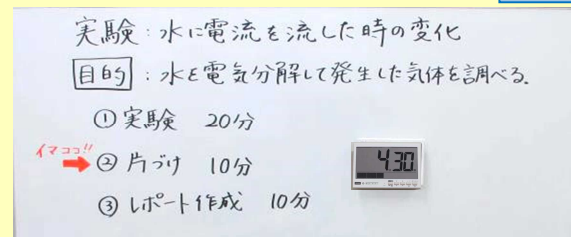 実験:水に電流を流した時の変化
目的:水を電気分解して発生した気体を調べる.
①実験 20分
イマココ!!
②片づけ 10分
4 30
③レポート作成 10分